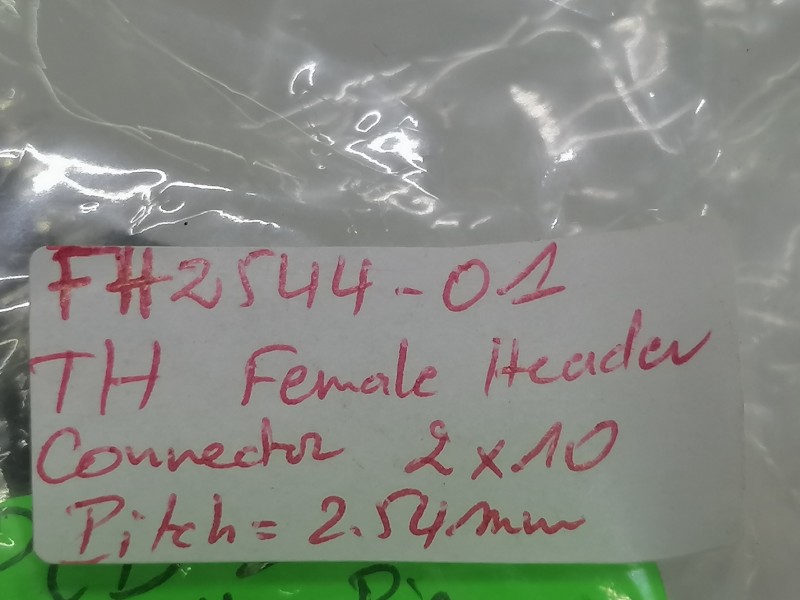 FH2544-01
TH Female Header
Connector 2x10
Pitch = 2.54mm